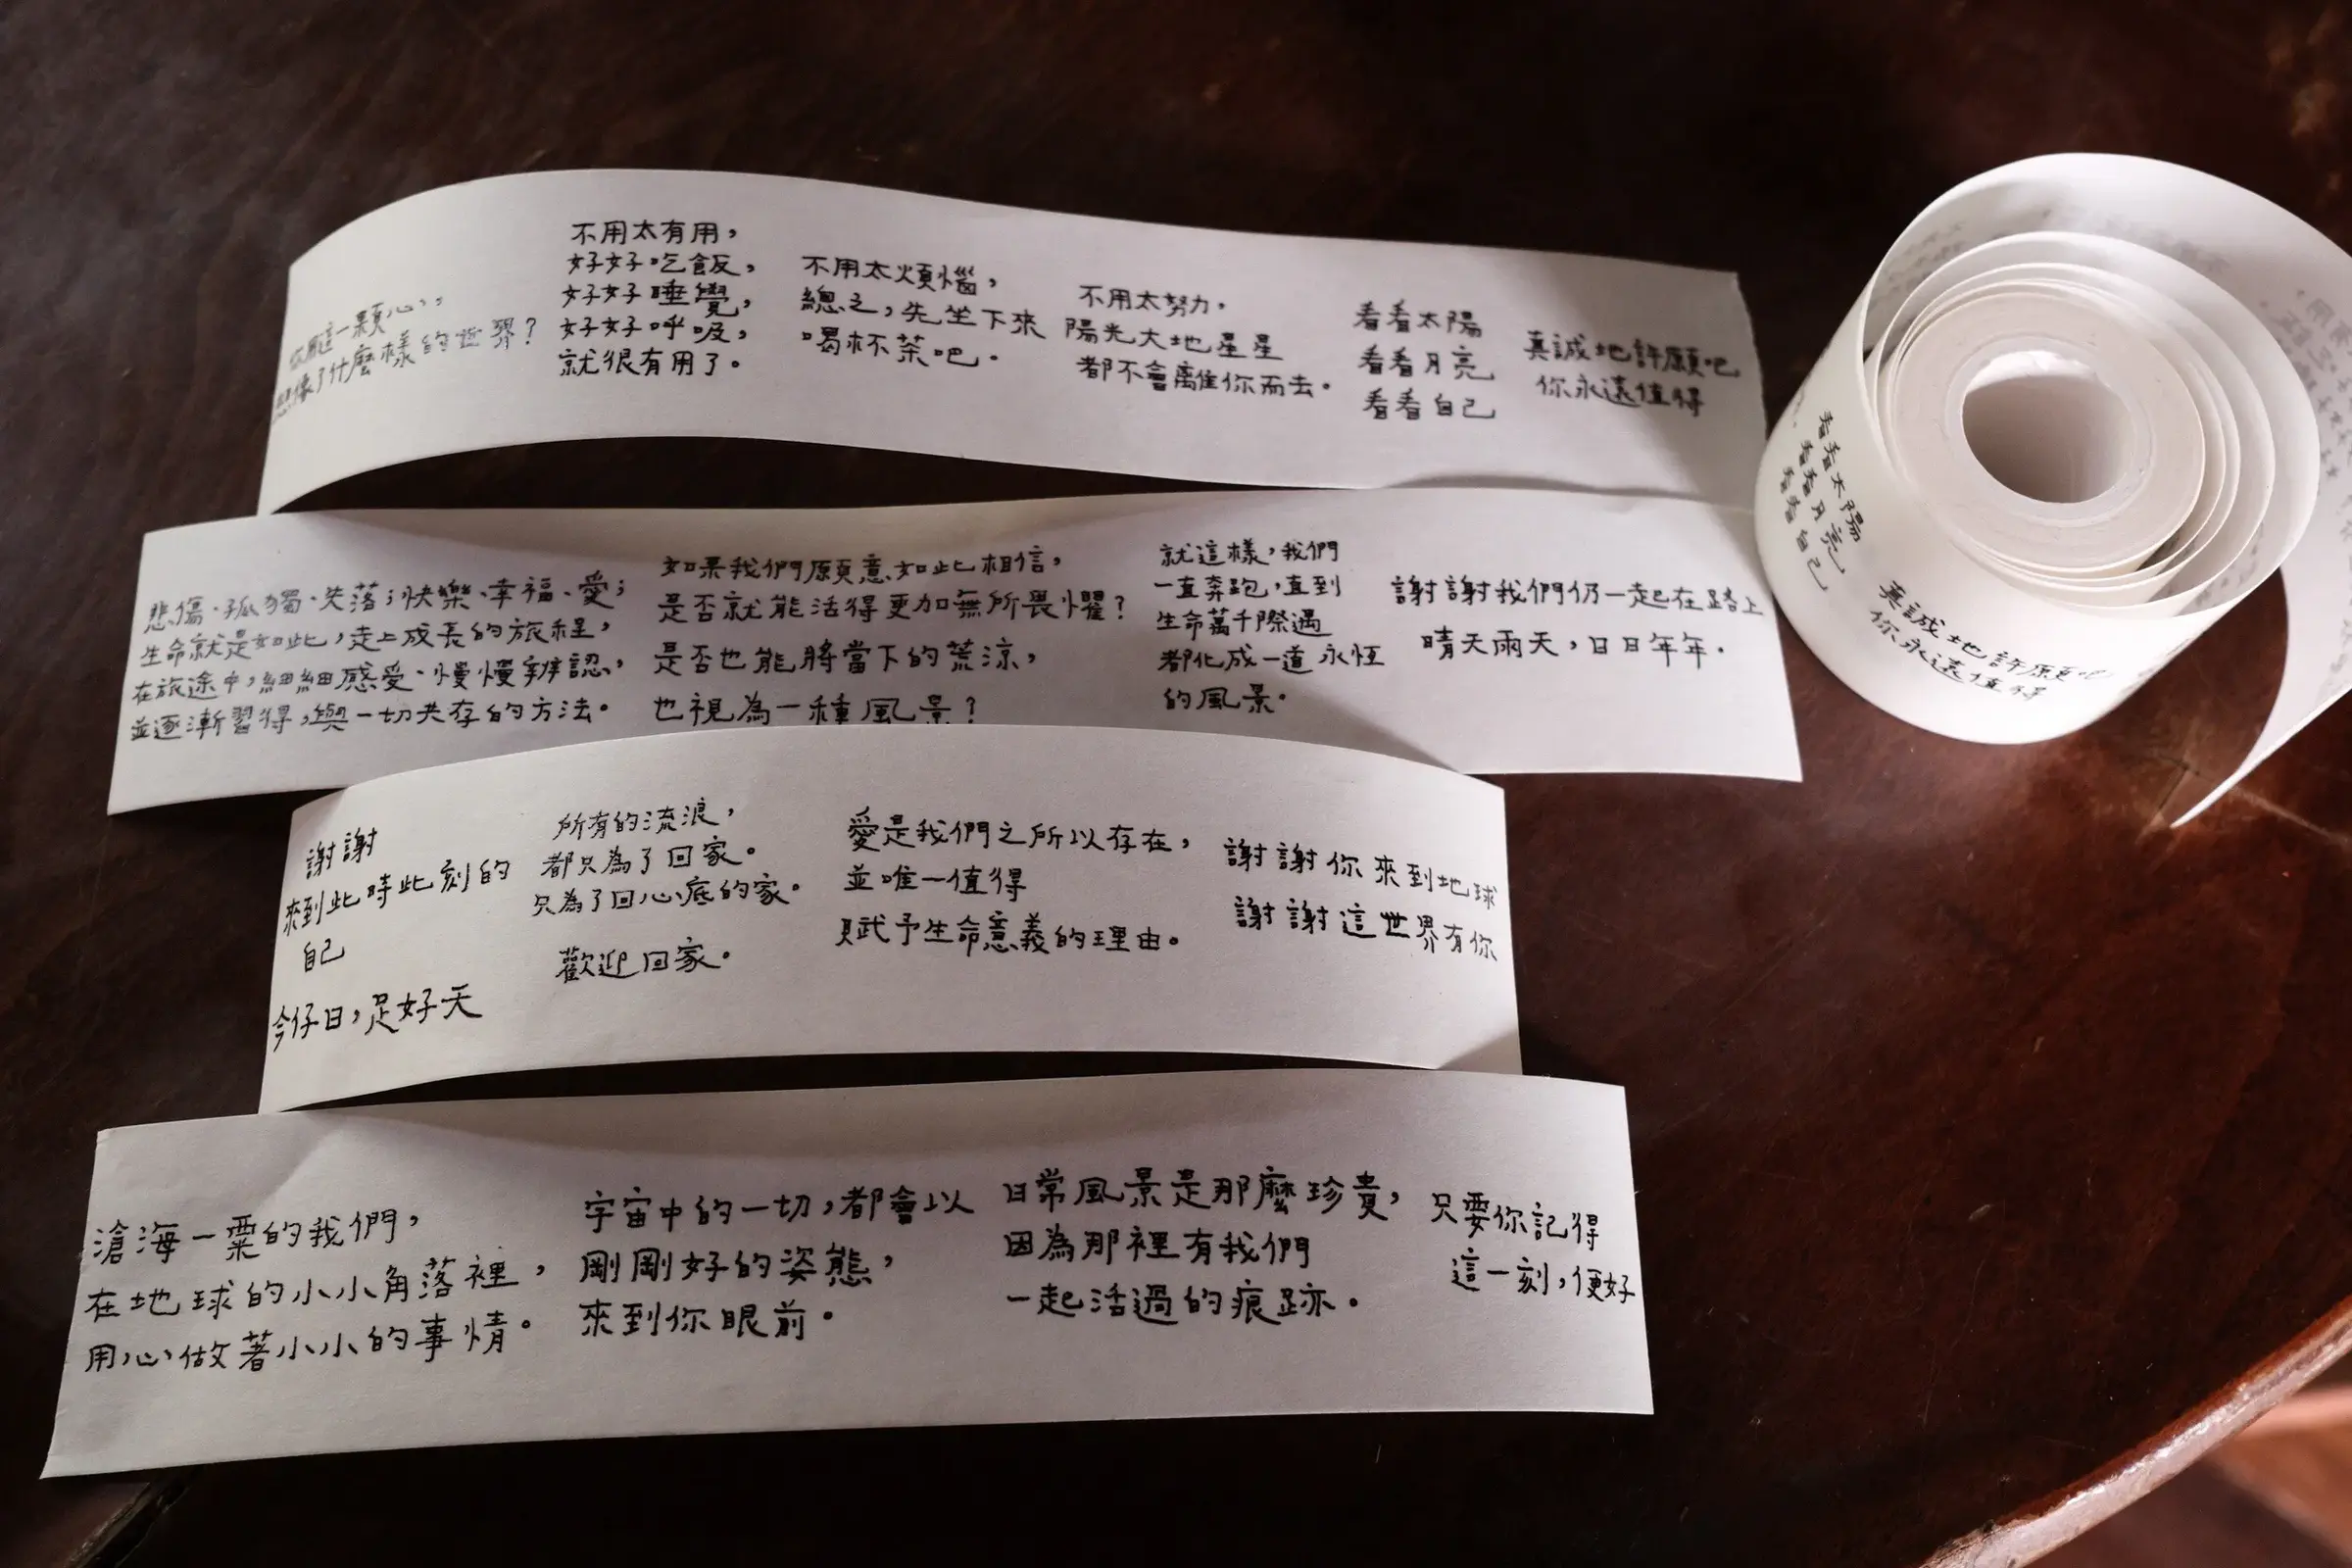 你用這一顆心,
想像了什麼樣的世界?
不用太有用,
好好吃飯,
好好睡覺,
好好呼吸,
就很有用了。
不用太煩惱,
總之,先坐下來
喝杯茶吧。
不用太努力,
陽光大地星星
都不會離你而去。
看看太陽
看看月亮
看看自己
真誠地許願吧
你永遠值得
悲傷、孤獨、失落;快樂、幸福、愛;
生命就是如此,走上成長的旅程,
在旅途中,細細感受、慢慢辨認,
並逐漸習得,與一切共存的方法。
如果我們願意如此相信,
是否就能活得更加無所畏懼?
是否也能將當下的荒涼,
也視為一種風景?
就這樣,我們
一直奔跑,直到
生命萬千際遇
都化成一道永恆
的風景。
謝謝我們仍一起在路上
晴天雨天,日日年年。
謝謝
來到此時此刻的
自己
今仔日,是好天
所有的流浪,
都只為了回家。
只為了回心底的家。
歡迎回家。
愛是我們之所以存在,
並唯一值得
賦予生命意義的理由。
謝謝你來到地球
謝謝這世界有你
滄海一粟的我們,
在地球的小小角落裡,
用心做著小小的事情。
宇宙中的一切,都會以
剛剛好的姿態,
來到你眼前。
日常風景是那麼珍貴,
因為那裡有我們
一起活過的痕跡。
只要你記得
這一刻,便好
看看太陽
看看月亮
看看自己
真誠地許願吧
你永遠值得